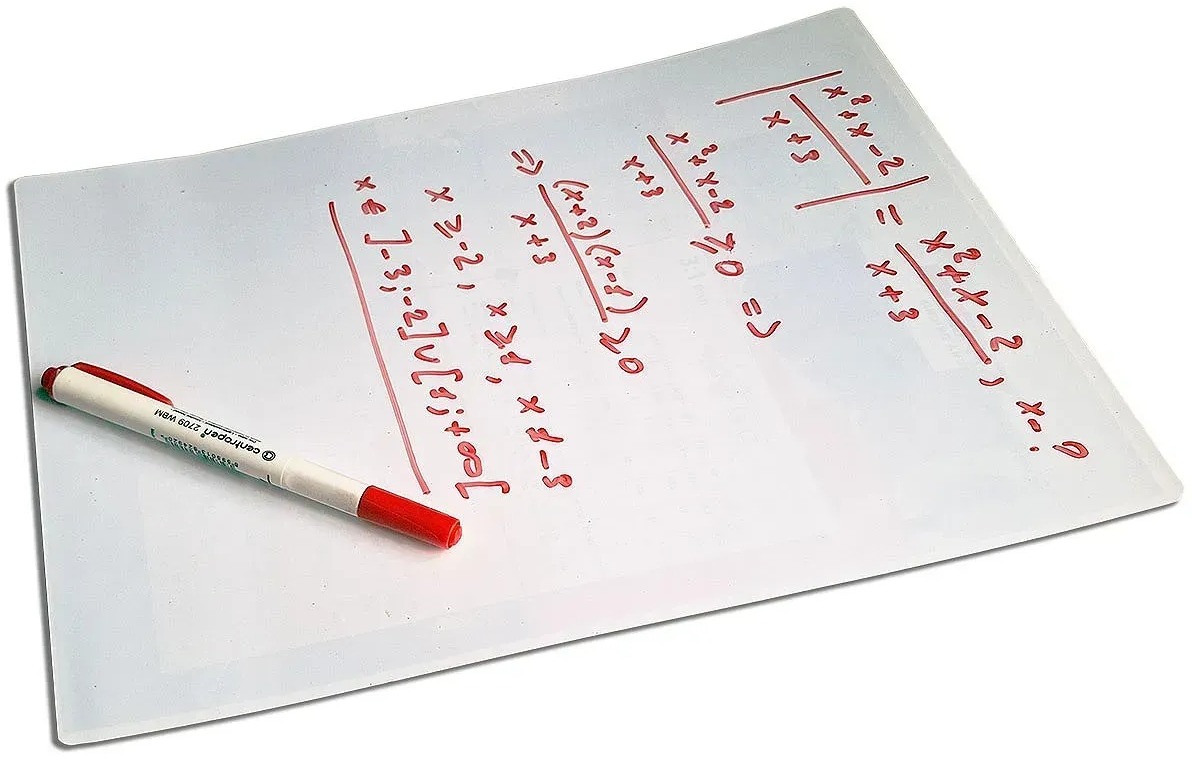 |x²+x-2 / x+3| = x²+x-2 / x+3, x=?
x²+x-2 / x+3 ≥ 0 =>
=> (x+2)(x-1) / x+3 ≥ 0
x ≥ -2, x ≥ 1, x ≠ -3
x ∈ ]-3;-2] ∪ [1;+∞[
centropen 2709 WBM